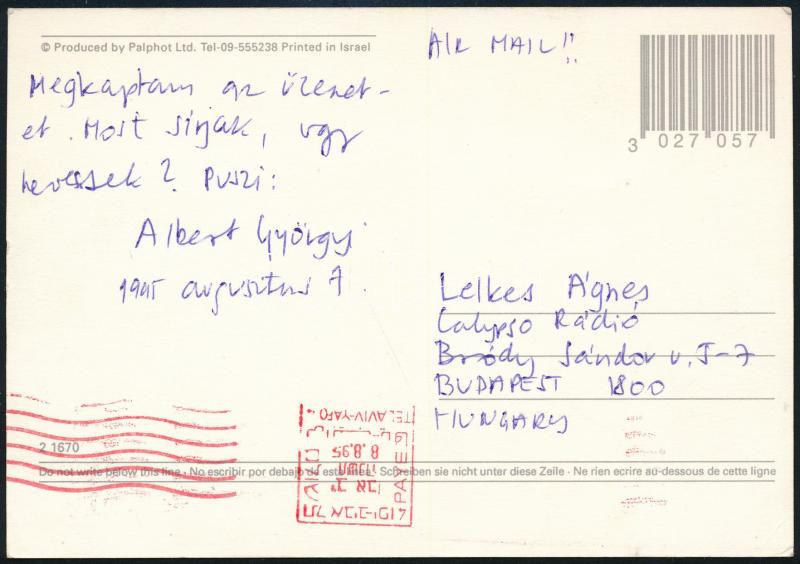 © Produced by Palphot Ltd. Tel-09-555238 Printed in Israel
Megkaptam az üzenet-
et. Most sírjak, vagy
nevessek? Puszi:
Albert Györgyi
1995 augusztus 7.
AIR MAIL!!
3 027 057
Lelkes Ágnes
Calypso Rádió
Bródy Sándor u. 5-7
BUDAPEST 1800
HUNGARY
TEL AVIV-YAFO
8.8.95
תל אביב-יפו
2 1670
Do not write below this line · No escribir por debajo de esta linea · Schreiben sie nicht unter diese Zeile · Ne rien ecrire au-dessous de cette ligne